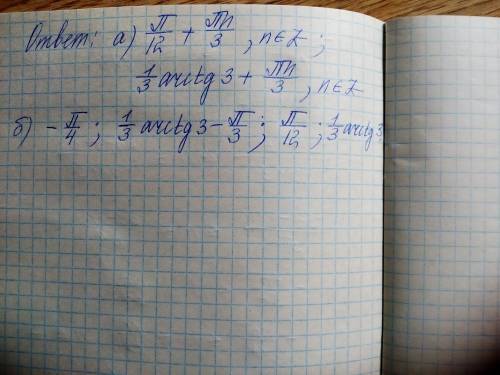 Ответ: а) π/12 + πn/3, n∈Z;
1/3 arctg 3 + πn/3, n∈Z
б) -π/4; 1/3 arctg 3 - π/3; π/12; 1/3 arctg 3